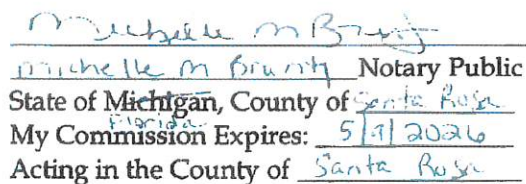 Michelle M
michelle M Notary Public
State of Michigan, County of Santa Rosa
Florida
My Commission Expires: 5/9/2026
Acting in the County of Santa Rosa